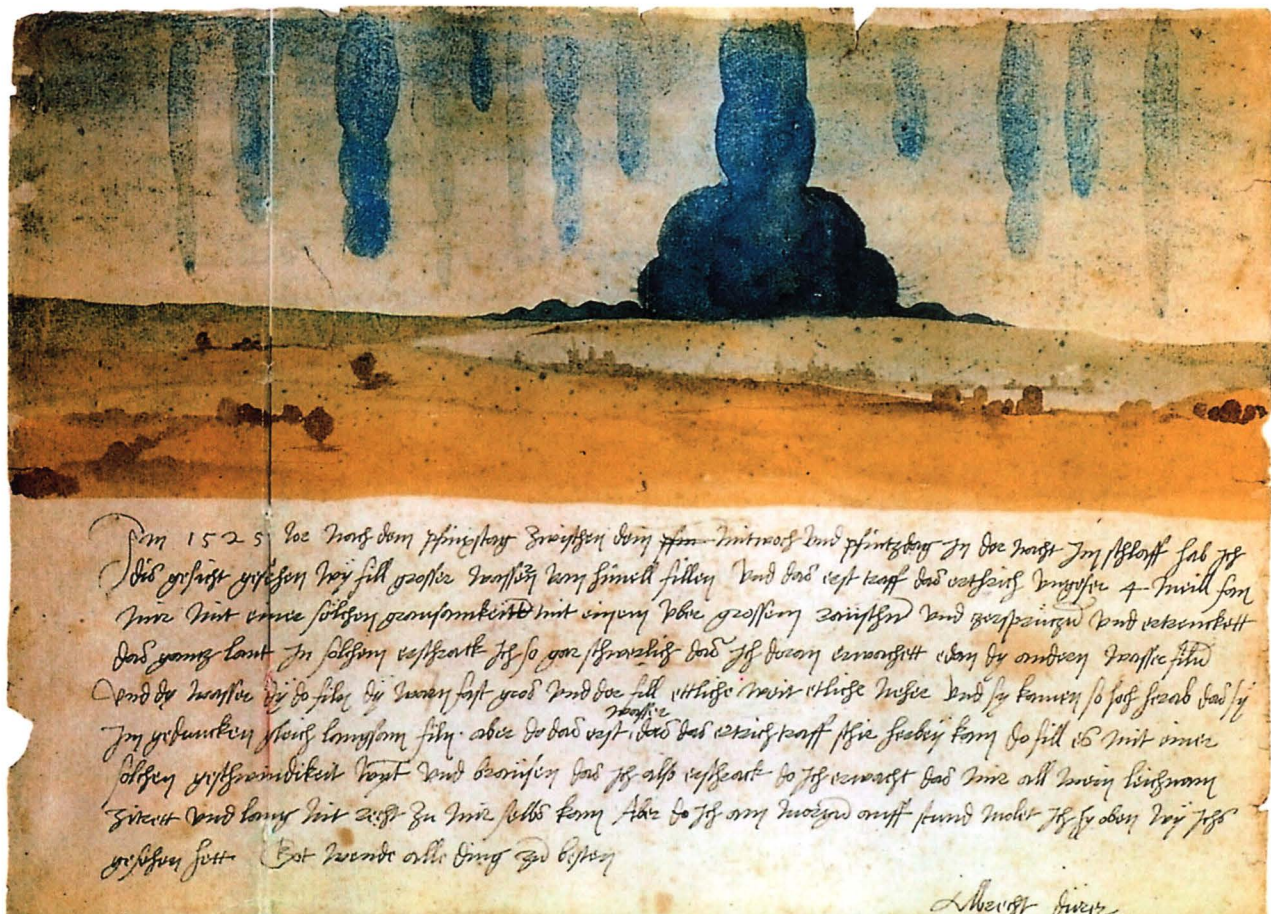 Im 1525 Jor nach dem pfinxstag zwischen dem pfin mitwoch und pfintzdag in der nacht im schlaff hab ich
dis gesicht gesehen wy fill grosser wassern van himell fillen und das erst traff das erthrich ungefer 4 meill fan
mir mit einer solchen grausamkeitt mit einem uber grossem raüschn und zersprützn und ertrenckett
das gantz lant In solchem erschrack ich so gar schwerlich das ich doran erwachett edan dy andern wasser filn
und dy wasser dy do filn dy warn fast gros und der fill ettliche weit etliche neher und sy kamen so hoch herab das sy
im geduncken gleich langsam filn. aber do das erst wasser das das ertrich traff schir herbey kam do fill es mit einer
solchen geschwindikeit wynt und braüsen das ich also erschrack do ich erwacht das mir all mein leichnam
zitrett und lang nit recht zu mir selbs kam Aber do ich am morgn auff stund molet ich hy oben wy ichs
gesehen hett Got wende alle ding zu besten
Albrecht dürer